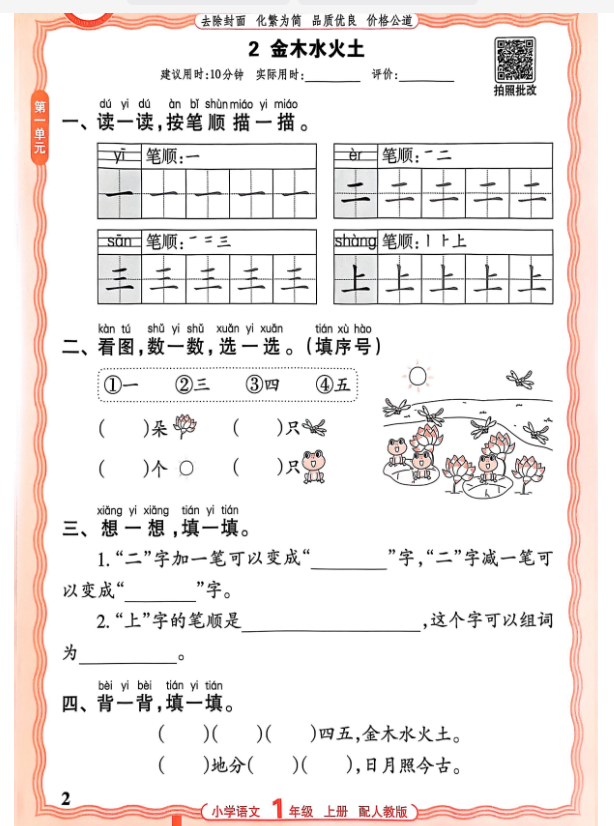 去除封面 化繁为简 品质优良 价格公道
2 金木水火土
建议用时:10分钟 实际用时:________ 评价:________
拍照批改
第一单元
dú yi dú àn bǐ shùn miáo yi miáo
一、读一读,按笔顺描一描。
yī 笔顺:一
一 一 一 一 一
èr 笔顺:一 二
二 二 二 二 二
sān 笔顺:一 二 三
三 三 三 三 三
shàng 笔顺:丨 ⺊ 上
上 上 上 上 上
kàn tú shǔ yi shǔ xuǎn yi xuǎn tián xù hào
二、看图,数一数,选一选。(填序号)
①一 ②三 ③四 ④五
( )朵 ( )只
( )个 ( )只
xiǎng yi xiǎng tián yi tián
三、想一想,填一填。
1.“二”字加一笔可以变成“________”字,“二”字减一笔可
以变成“________”字。
2.“上”字的笔顺是____________________,这个字可以组词
为___________。
bèi yi bèi tián yi tián
四、背一背,填一填。
( )( )( )四五,金木水火土。
( )地分( )( ),日月照今古。
2
小学语文 1年级 上册 配人教版